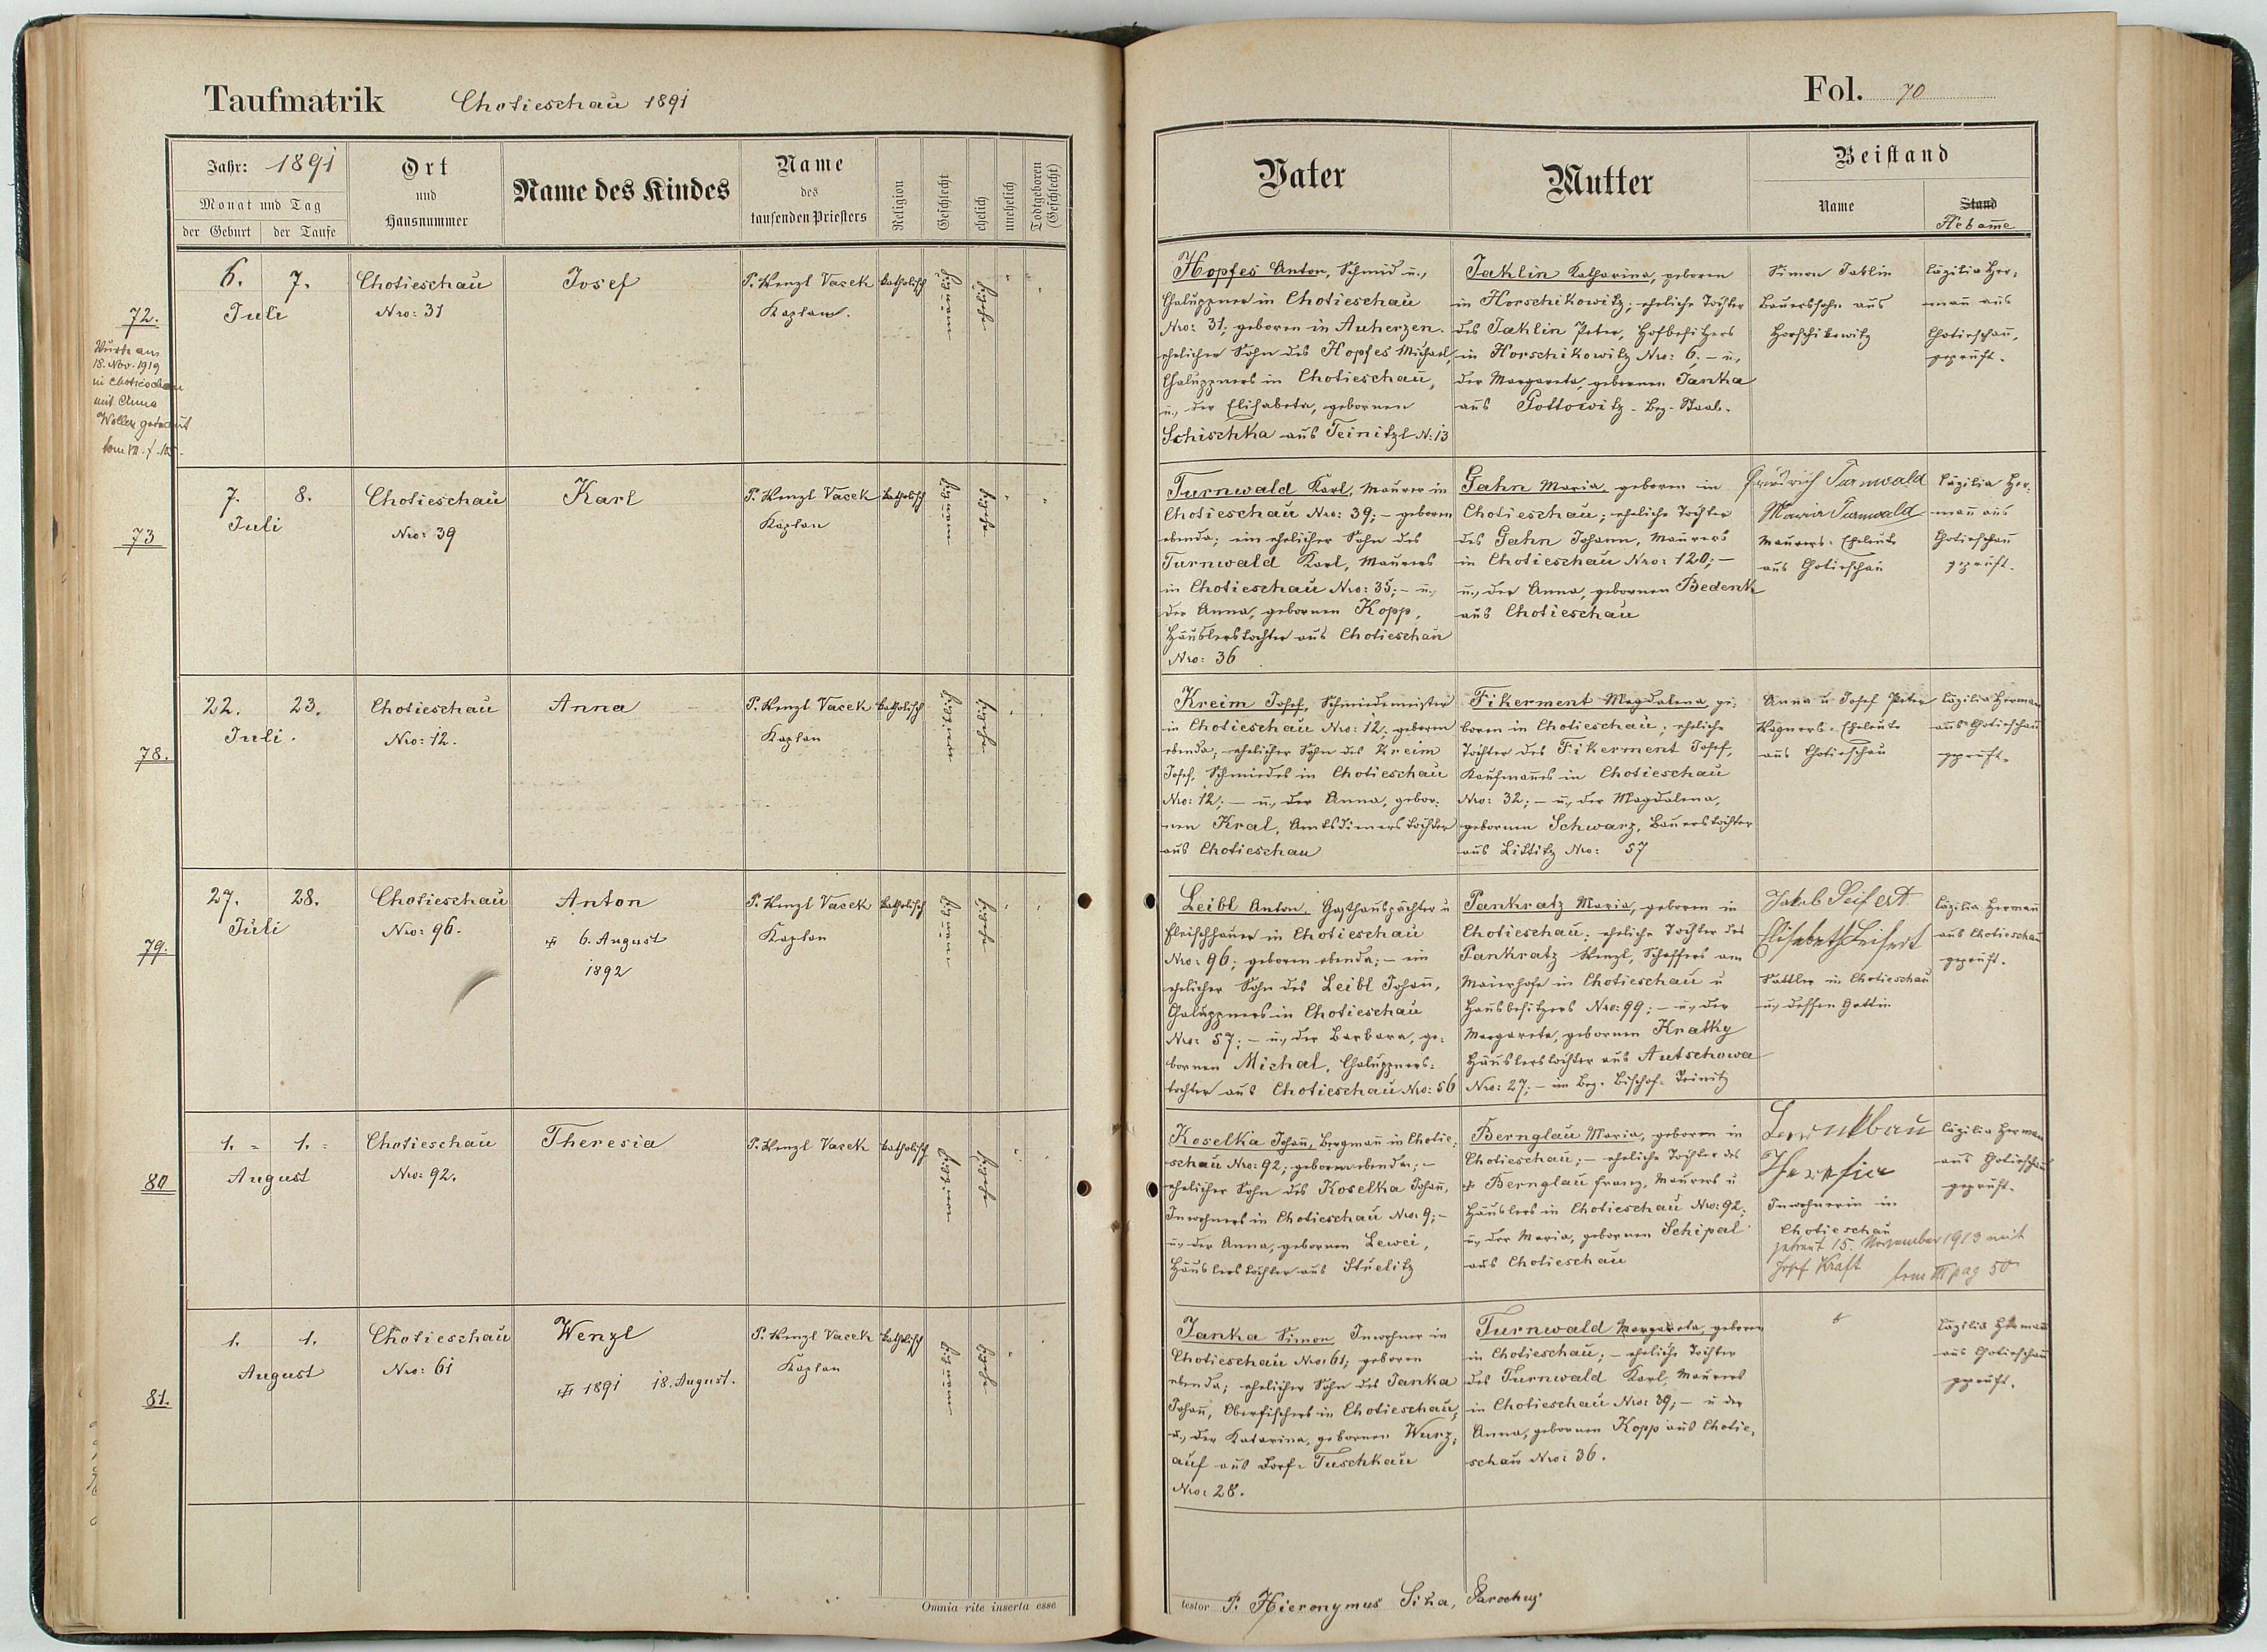 Taufmatrik Chotieschau 1891
Jahr: 1891
Monat und Tag
der Geburt der Taufe
Ort
und
Hausnummer
Name des Kindes
Name
des
taufenden Priesters
Religion
Geschlecht
ehelich
unehelich
Todtgeboren
(Geschlecht)
72.
Wurde am
18. Nov. 1919
in Chotieschau
mit Anna
getraut
6. 7.
Juli
Chotieschau
Nro: 31
Josef
P. Wenzl Vacek
Kaplan.
katholisch
73
7. 8.
Juli
Chotieschau
Nro: 39
Karl
P. Wenzl Vacek
Kaplan
katholisch
78.
22. 23.
Juli.
Chotieschau
Nro: 12.
Anna
P. Wenzl Vacek
Kaplan
katholisch
79.
27. 28.
Juli
Chotieschau
Nro: 96.
Anton
6. August
1892
P. Wenzl Vacek
Kaplan
katholisch
80
1. 1.
August
Chotieschau
Nro: 92.
Theresia
P. Wenzl Vacek
katholisch
81.
1. 1.
August
Chotieschau
Nro: 61
Wenzl
1891 18. August.
P. Wenzl Vacek
Kaplan
katholisch
Omnia rite inserta esse
Fol. 70
Vater
Mutter
Beistand
Name
Stand
Hebam̄e
Hopfes Anton, Schmid u.,
Chaluppner in Chotieschau
Nro: 31; geboren in Auherzen.
ehelicher Sohn des Hopfes Michael,
Chaluppners in Chotieschau,
u., der Elisabeta, gebornen
Schischka aus Teinitzl N: 13
Jaklin Katharina, geboren
in Horschikowitz; eheliche Tochter
des Jaklin Peter, Hofbesitzers
in Horschikowitz Nro: 6; – u.,
der Margareta, gebornen Janka
aus Gottowitz – Bez. Staab.
Simon Jaklin
Bauerssohn aus
Horschikowitz
Cäzilia Her=
man̄ aus
Chotieschau,
geprüft.
Turnwald Karl, Maurer in
Chotieschau Nro: 39; – geboren
ebenda; ein ehelicher Sohn des
Turnwald Karl, Maurers
in Chotieschau Nro: 35; – u.,
der Anna, gebornen Kopp,
Häuslerstochter aus Chotieschau
Nro: 36
Gahn Maria, geboren in
Chotieschau; eheliche Tochter
des Gahn Johann, Maurers
in Chotieschau Nro: 120; –
u., der Anna, gebornen Bedenk
aus Chotieschau
Friedrich Turnwald
Maria Turnwald
Maurers=Eheleute
aus Chotieschau
Cäzilia Her=
man̄ aus
Chotieschau
geprüft.
Kreim Josef, Schmiedemeister
in Chotieschau Nro: 12; geboren
ebenda; ehelicher Sohn des Kreim
Josef, Schmiedes in Chotieschau
Nro: 12; – u., der Anna, gebor=
nen Kral, Amtsdienerstochter
aus Chotieschau
Fikerment Magdalena ge=
boren in Chotieschau; eheliche
Tochter des Fikerment Josef,
Kaufman̄es in Chotieschau
Nro: 32; – u., der Magdalena,
gebornen Schwarz, Bauerstochter
aus Littitz Nro: 57
Anna u Josef Peter
Wagners=Eheleute
aus Chotieschau
Cäzilia Herman̄
aus Chotieschau
geprüft.
Leibl Anton, Gasthauspächter u
Fleischhauer in Chotieschau
Nro: 96; geboren ebenda; – ein
ehelicher Sohn des Leibl Johan̄,
Chaluppners in Chotieschau
Nro: 57; – u., der Barbara, ge=
bornen Michal, Chaluppners=
tochter aus Chotieschau Nro: 56
Pankratz Maria, geboren in
Chotieschau; eheliche Tochter des
Pankratz Wenzl, Schaffers am
Maierhofe in Chotieschau u
Hausbesitzers Nro: 99; – u., der
Margareta, gebornen Kratky
Häuslerstochter aus Autschowa
Nro: 27; – im Bez. Bischof=Teinitz
Jakob Seifert
Elisabeth Seifert
Sattler in Chotieschau
u., dessen Gattin
Cäzilia Herman̄
aus Chotieschau
geprüft.
Koselka Johan̄, Bergman̄ in Chotie=
schau Nro: 92; geboren ebenda; –
ehelicher Sohn des Koselka Johan̄,
Inwohners in Chotieschau Nro: 9; –
u., der Anna, gebornen Lewei,
Häuslerstochter aus Stuelitz
Bernglau Maria, geboren in
Chotieschau; – eheliche Tochter des
Bernglau Franz, Maurers u
Häuslers in Chotieschau Nro: 92;
u., der Maria, gebornen Schipal
aus Chotieschau
Theresia
Inwohnerin in
Chotieschau
getraut 15. November 1913 mit
Josef Kraft tom III pag 50
Cäzilia Herman̄
aus Chotieschau
geprüft.
Janka Simon, Inwohner in
Chotieschau Nro: 61; geboren
ebenda; ehelicher Sohn des Janka
Johan̄, Oberfischers in Chotieschau;
u., der Katarina, gebornen Wurz=
auf aus Dorf=Tuschkau
Nro: 28.
Turnwald Margareta, geboren
in Chotieschau; – eheliche Tochter
des Turnwald Karl, Maurers
in Chotieschau Nro: 39; – u der
Anna, gebornen Kopp aus Chotie=
schau Nro: 36.
Cäzilia Herman̄
aus Chotieschau
geprüft.
testor P. Hieronymus Sika, Parochus